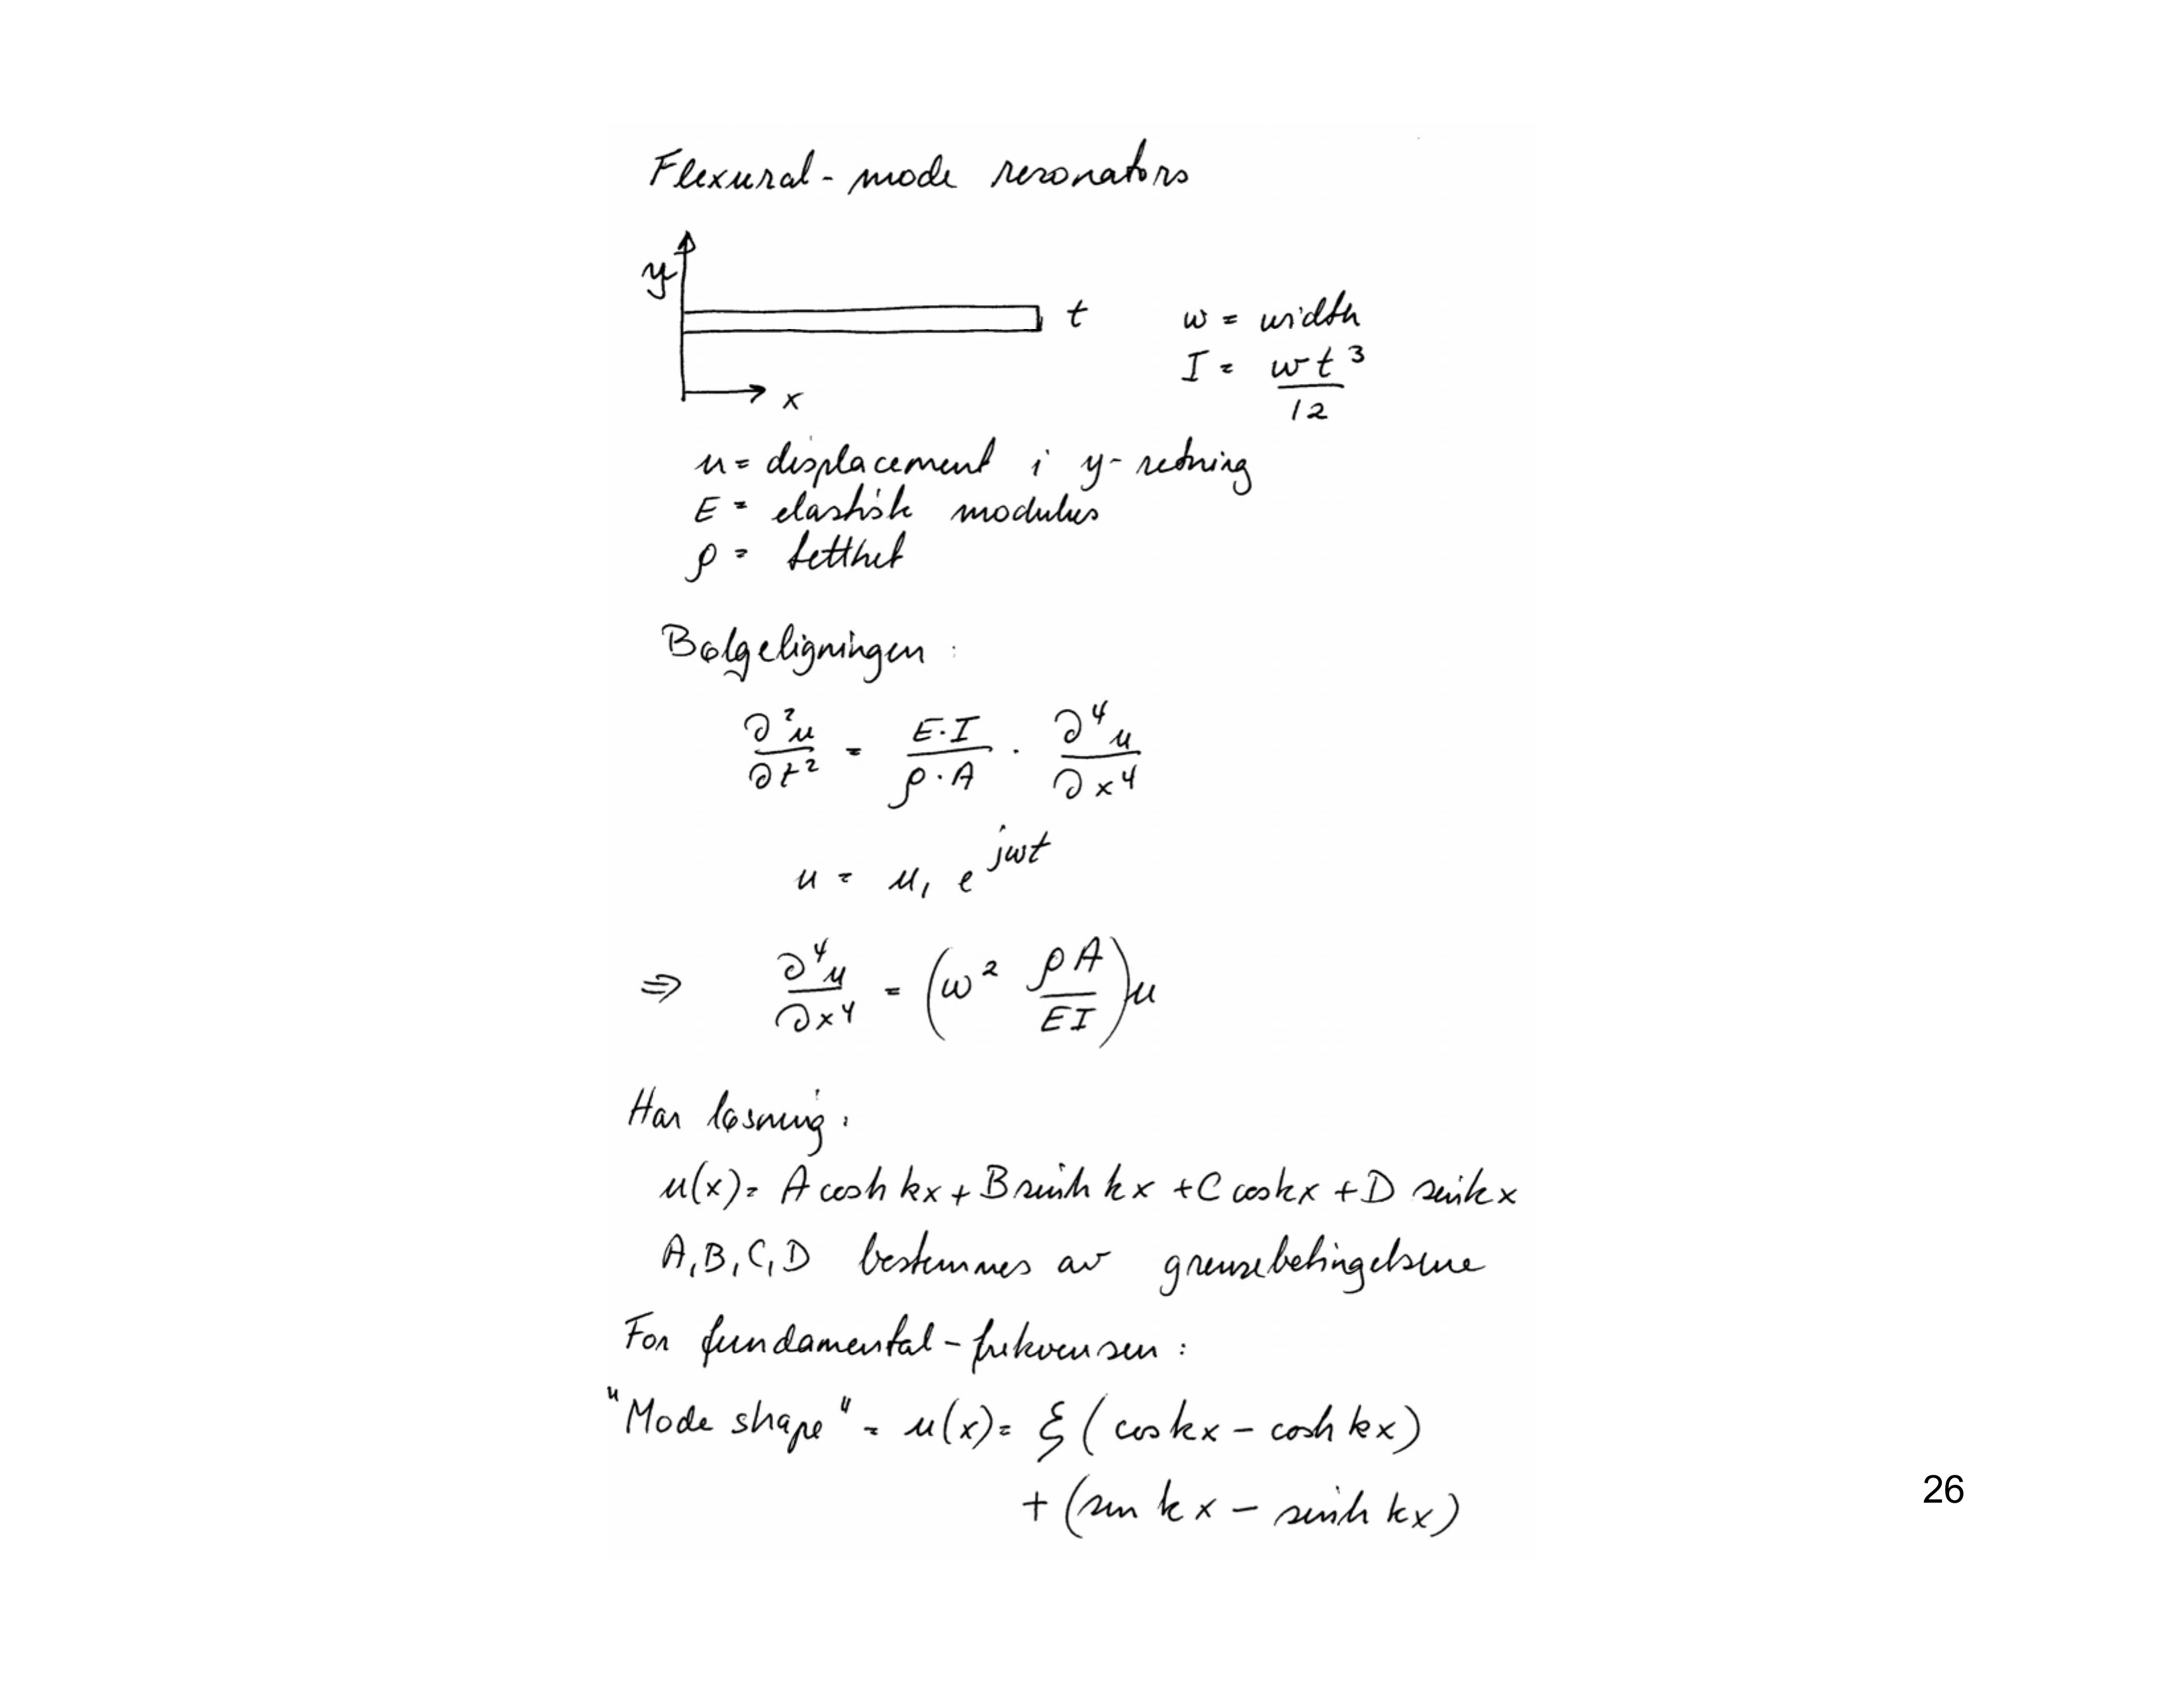 Flexural-mode resonators
y
t
w = width
I = wt³/12
x
u = displacement i y-retning
E = elastisk modulus
ρ = tetthet
Bølgeligningen:
∂²u/∂t² = E·I/ρ·A · ∂⁴u/∂x⁴
u = u₁ e^jωt
⇒ ∂⁴u/∂x⁴ = (ω² ρA/EI)u
Har løsning:
u(x) = A cosh kx + B sinh kx + C cos kx + D sin kx
A, B, C, D bestemmes av grensebetingelsene
For fundamental-frekvensen:
"Mode shape" = u(x) = ξ (cos kx − cosh kx)
+ (sin kx − sinh kx)
26